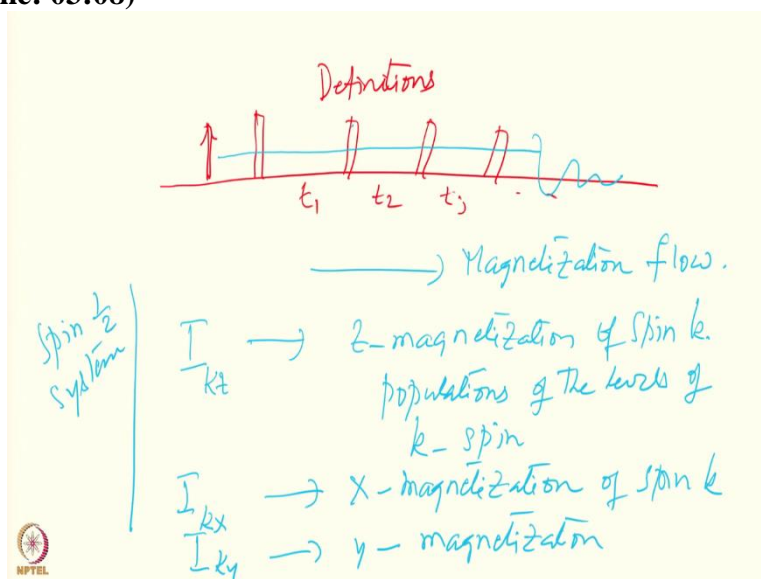 ne: 05:08)
Definitions
t1 t2 t3 . . .
⟶ Magnetization flow.
Spin 1/2 system
Ikz → z-magnetization of spin k.
populations of the levels of
k-spin
Ikx → x-magnetization of spin k
Iky → y-magnetization
NPTEL